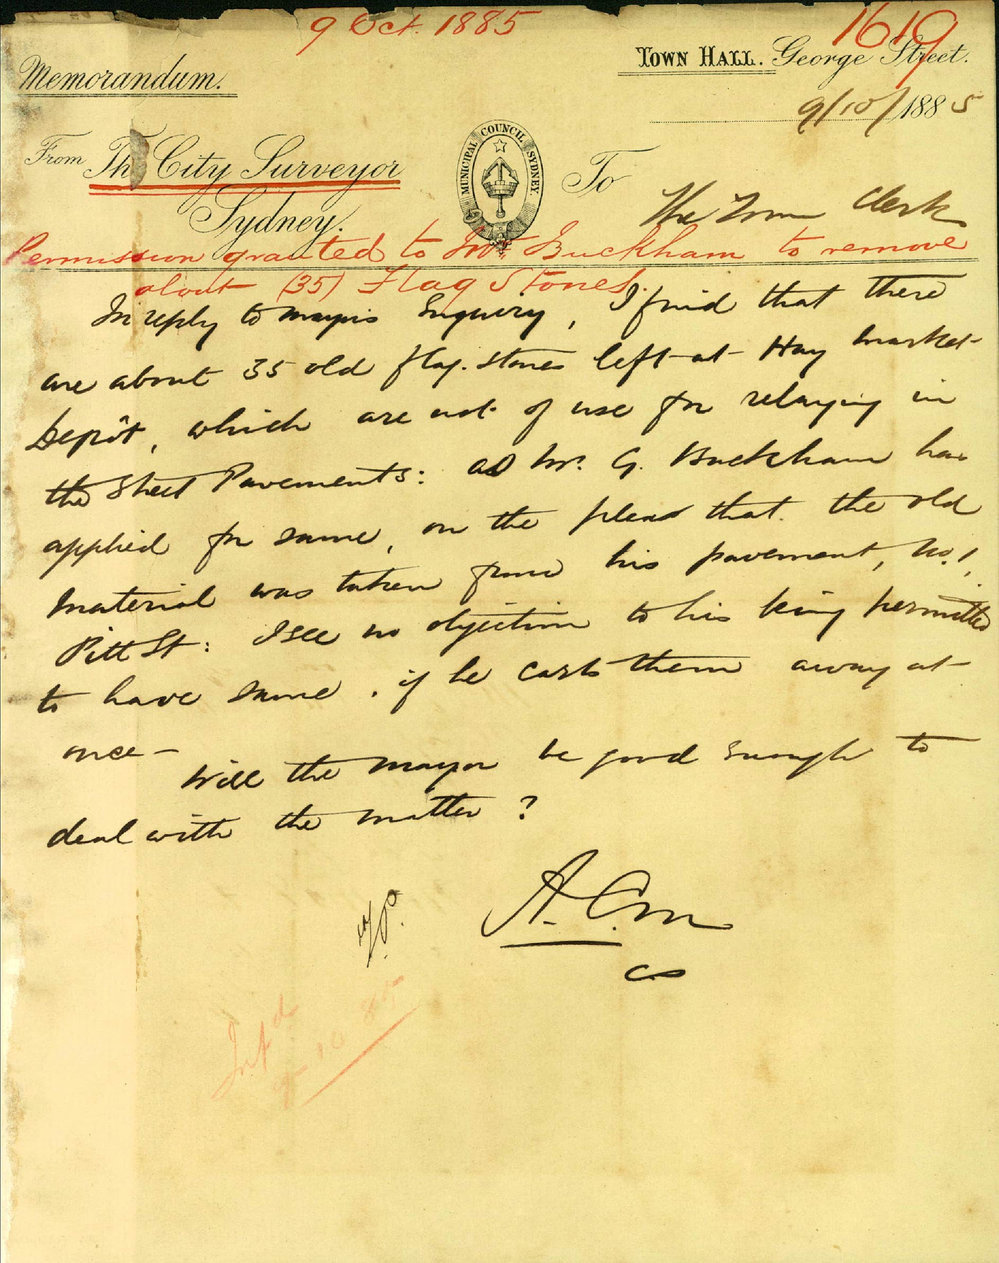 9 Oct. 1885
1619
Memorandum.
TOWN HALL. George Street.
9/10/1885
From The City Surveyor
Sydney.
MUNICIPAL COUNCIL SYDNEY
To
The Town Clerk
Permission granted to Mr Buckham to remove
about (35) Flag Stones.
In reply to mayor's Inquiry, I find that there
are about 35 old flag. stones left at Hay market
Depôt, which are not of use for relaying in
the Street Pavements: as Mr. G. Buckham has
applied for same, on the plea that the old
material was taken from his pavement, No. 1,
Pitt St: I see no objection to his being permitted
to have same. if he carts them away at
once —
Will the mayor be good enough to
deal with the matter?
A. C. M
CS
Infd
9 10 85